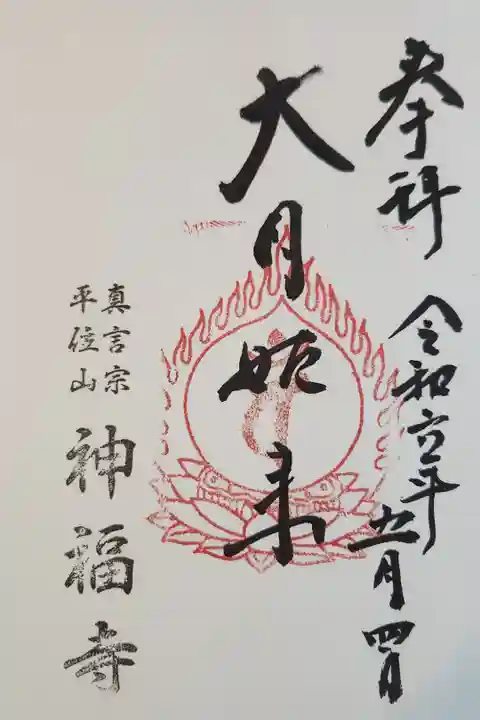 奉拝
令和六年五月四日
大日如来
真言宗
平位山
神福寺